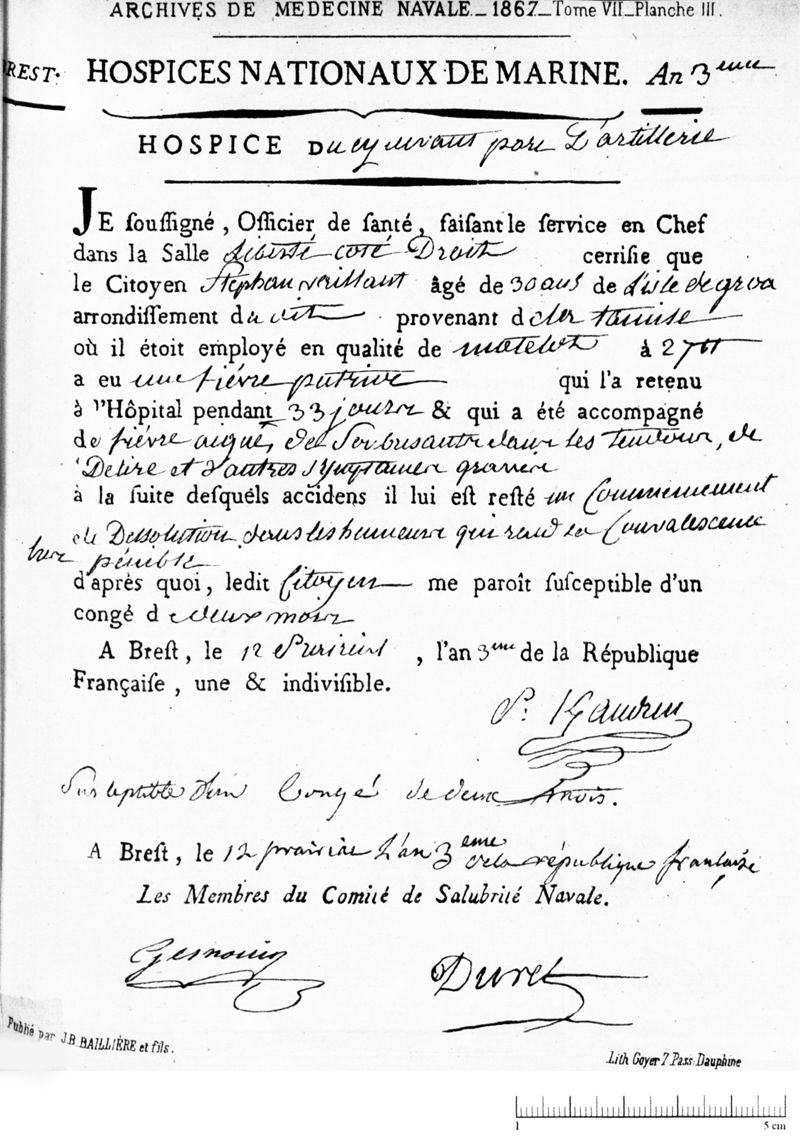 ARCHIVES DE MÉDECINE NAVALE _ 1867 _ Tome VII _ Planche III.
REST. HOSPICES NATIONAUX DE MARINE. An 3eme
HOSPICE Du cy devant parc D'artillerie
JE souſſigné, Officier de ſanté, faiſant le ſervice en Chef
dans la Salle Liberté coté Droit certifie que
le Citoyen Stephan vaillant âgé de 30 ans de L'isle de groa
arrondiſſement du provenant de la tamise
où il étoit employé en qualité de matelot à 27tt
a eu une fièvre putride qui l'a retenu
à l'Hôpital pendant 33 jours & qui a été accompagné
de fièvre aiguë, de Soubresauts dans les Tendons, de
Délire et d'autres symptomes graves
à la ſuite deſquels accidens il lui eſt reſté un Commencement
de Dissolution dans les humeurs qui rend sa Convalescence
très pénible
d'après quoi, ledit Citoyen me paroît ſuſceptible d'un
congé de deux mois
A Breſt, le 12 Prairial, l'an 3eme de la République
Françaiſe, une & indiviſible.
Susceptible d'un Congé de deux mois.
A Breſt, le 12 prairial L'an 3eme de la république française
Les Membres du Comité de Salubrité Navale.
Gesnouin Duret
Publié par J.B. BAILLIÈRE et fils.
Lith Goyer 7 Pass. Dauphine
1 5 cm